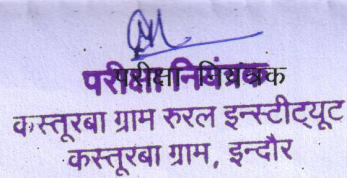 परीक्षा नियंत्रक
कस्तूरबा ग्राम रुरल इन्स्टीट्यूट
कस्तूरबा ग्राम, इन्दौर